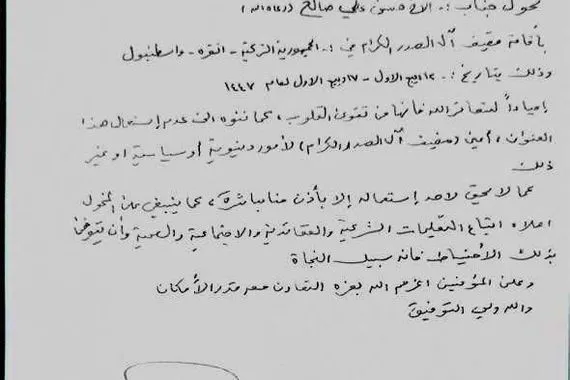 نخول جناب :- الاخ حسين علي صالح (رعاه الله)
بأقامة مضيف آل الصدر الكرام في :- الجمهورية التركية - انقره - واسطنبول
وذلك بتاريخ :- ١٢ ربيع الاول - ١٧ ربيع الاول لعام ١٤٤٧
إحياءاً لشعائر الله فانها من تقوى القلوب، كما ننوه الى عدم إستعمال هذا
العنوان، أعني (مضيف آل الصدر الكرام) لأمور دنيوية أو سياسية او غير
ذلك
كما لا يحق لاحد إستعماله إلا بأذن منا مباشرة، كما ينبغي على المخول
اعلاه اتباع التعليمات الشرعية والعقائدية والاجتماعية والصحية وأن يتوخى
بذلك الأحتياط فانه سبيل النجاة
وعلى المؤمنين اعزهم الله بعزه التعاون معه قدر الأمكان
والله ولي التوفيق